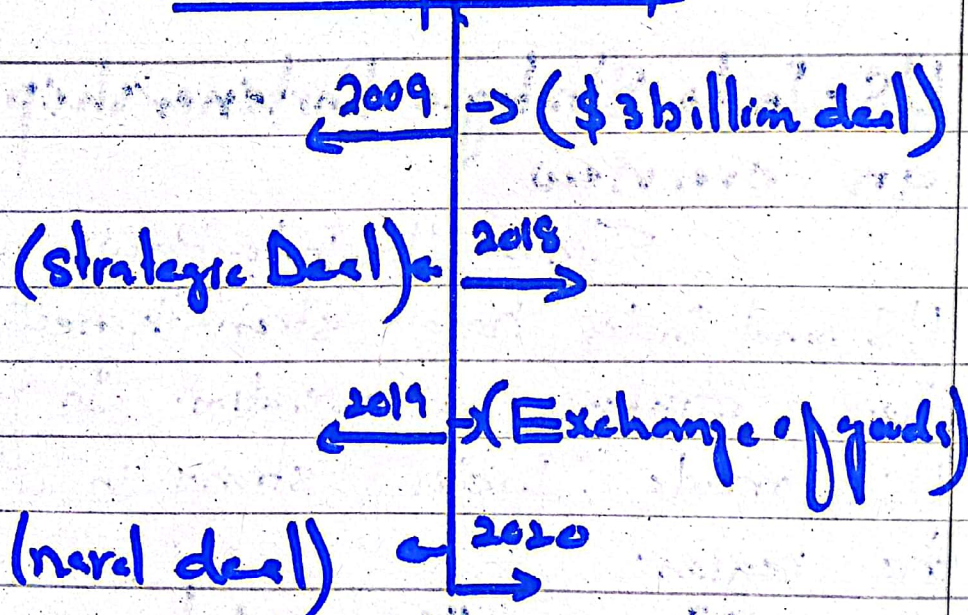 2009 → ($ 3 billion deal)
(Strategic Deal) ← 2018
2019 → (Exchange of goods)
(naval deal) ← 2020